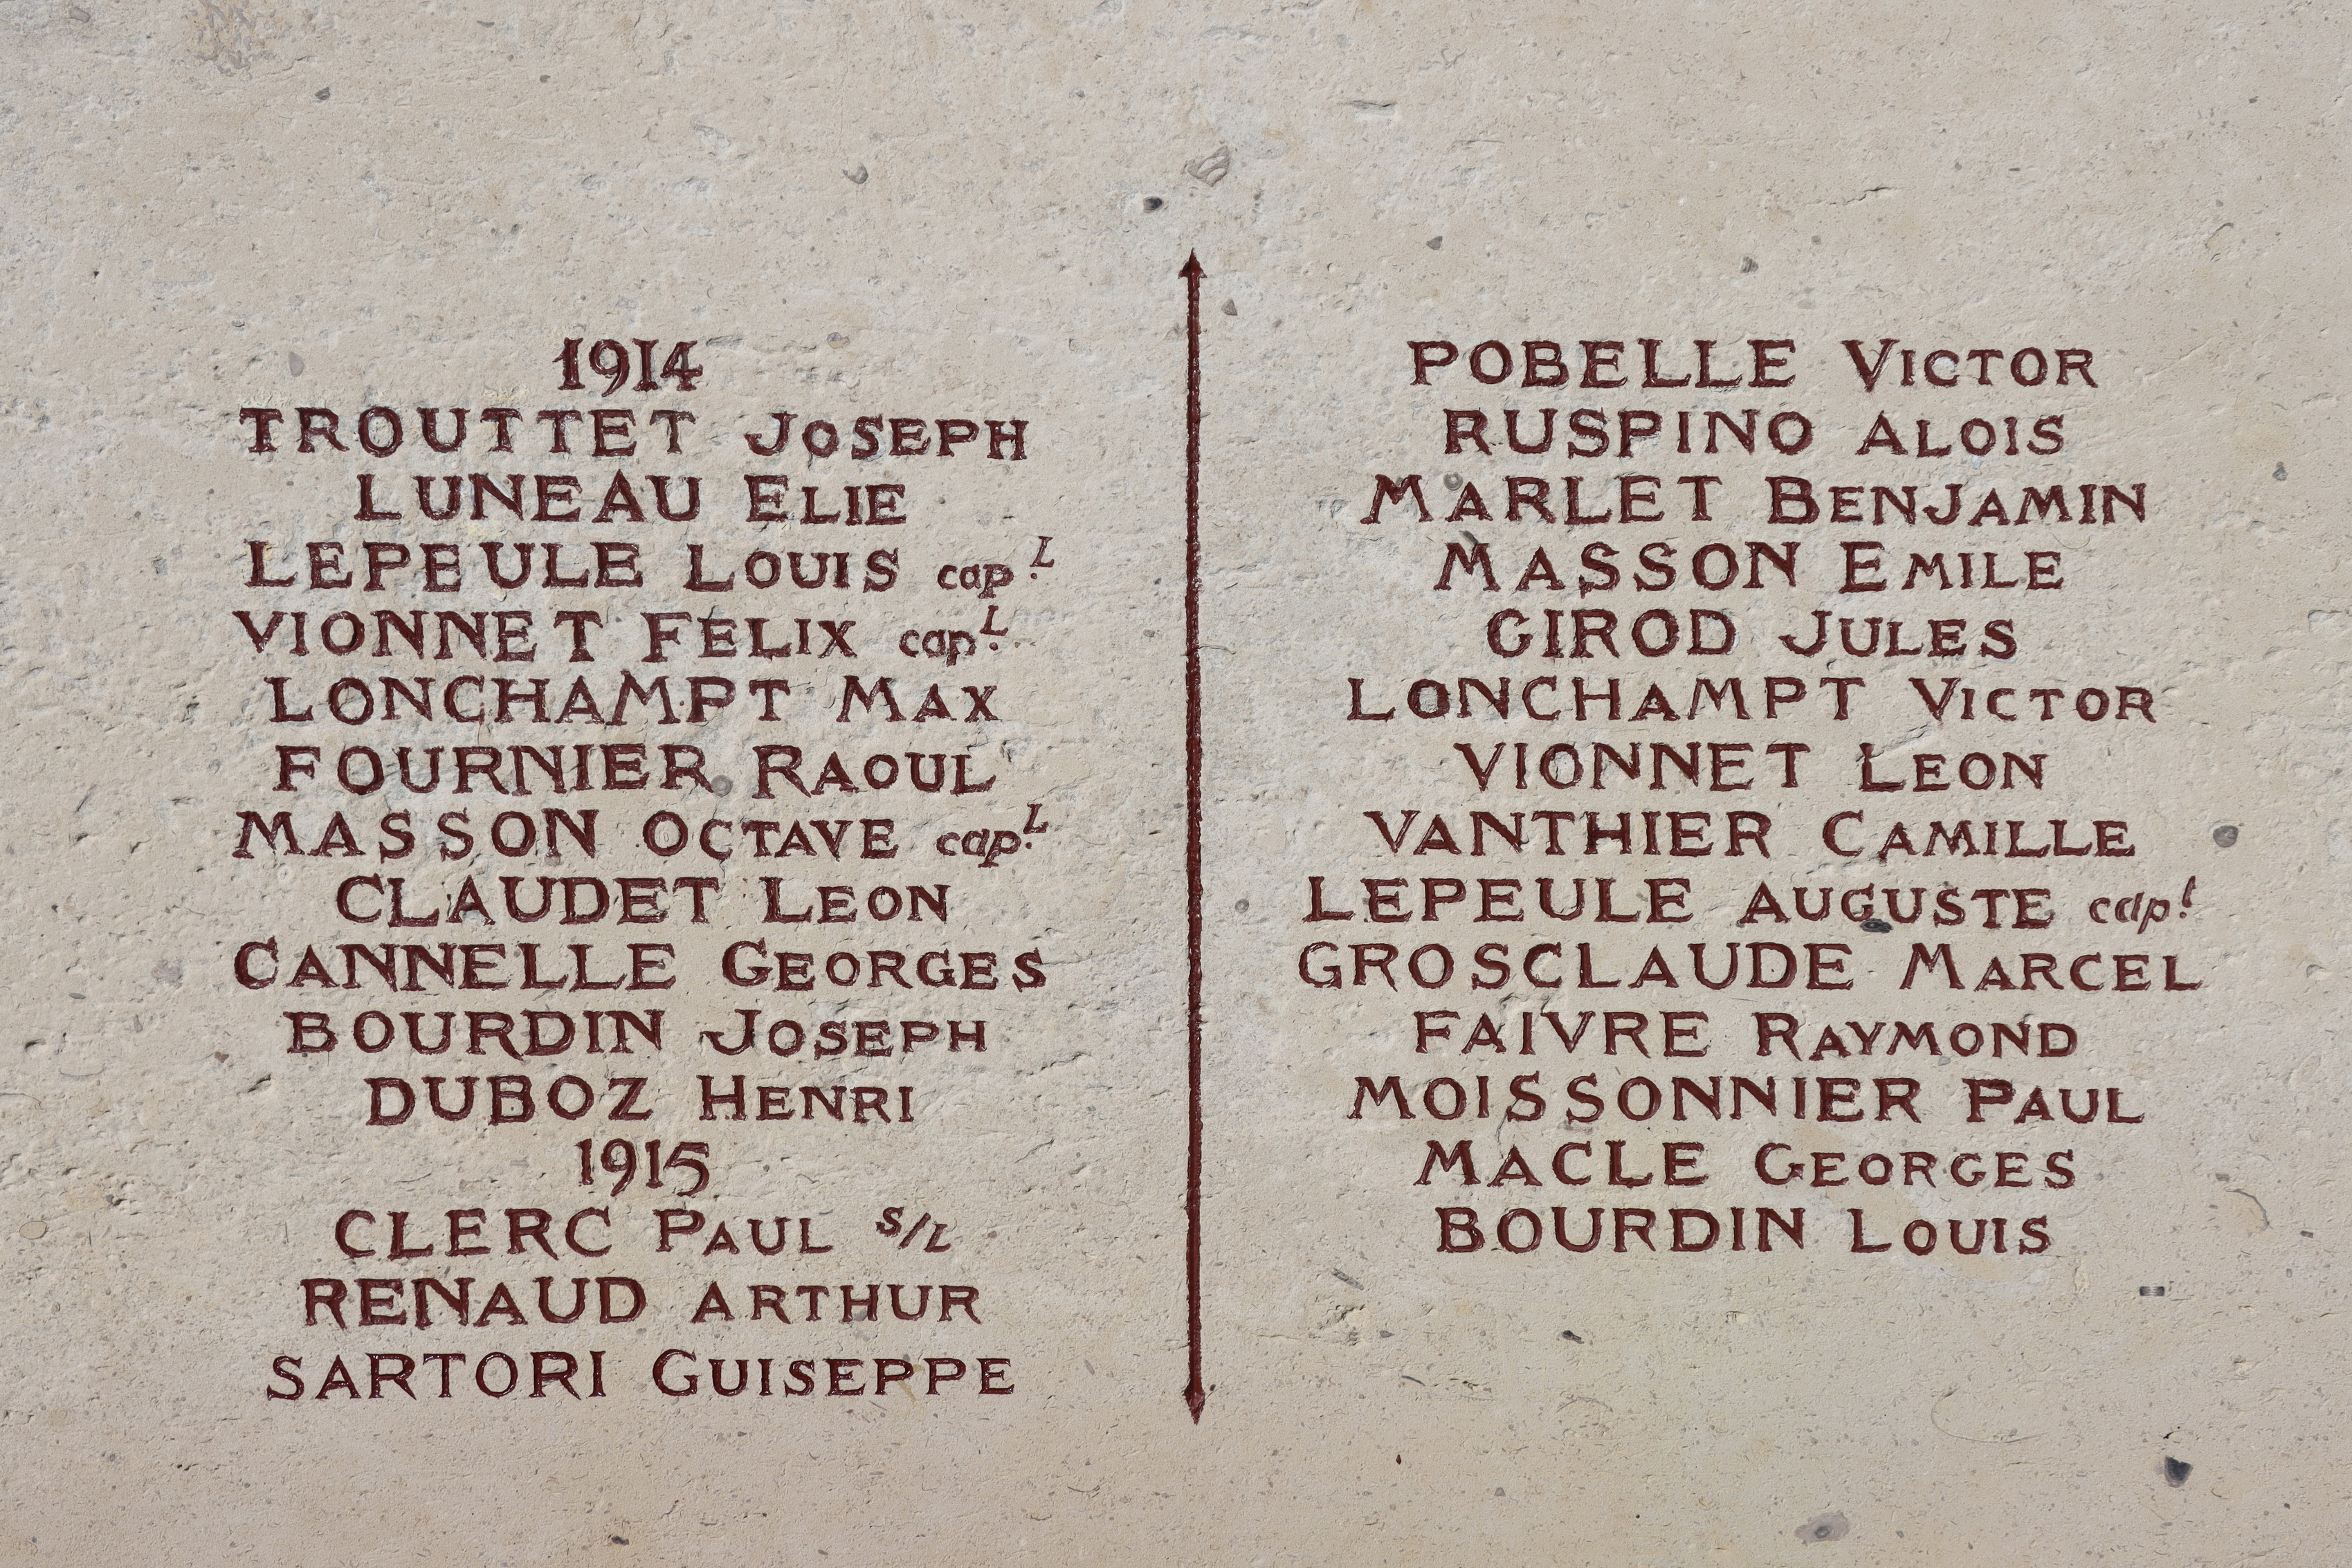 1914
TROUTTET JOSEPH
LUNEAU ELIE
LEPEULE LOUIS cap.L
VIONNET FELIX cap.L
LONCHAMPT MAX
FOURNIER RAOUL
MASSON OCTAVE cap.L
CLAUDET LEON
CANNELLE GEORGES
BOURDIN JOSEPH
DUBOZ HENRI
1915
CLERC PAUL S/L
RENAUD ARTHUR
SARTORI GUISEPPE
POBELLE VICTOR
RUSPINO ALOIS
MARLET BENJAMIN
MASSON EMILE
GIROD JULES
LONCHAMPT VICTOR
VIONNET LEON
VANTHIER CAMILLE
LEPEULE AUGUSTE cap.l
GROSCLAUDE MARCEL
FAIVRE RAYMOND
MOISSONNIER PAUL
MACLE GEORGES
BOURDIN LOUIS